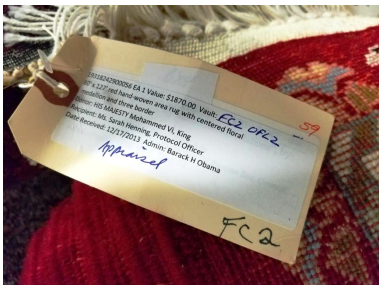 19318242900056 EA 1 Value: $1870.00 Vault: EC2 OFL2
x 127' red hand woven area rug with centered floral
medallion and three border
HIS MAJESTY Mohammed VI, King
Recipient: Ms. Sarah Henning, Protocol Officer
Date Received: 12/17/2013 Admin: Barack H Obama
59
Appraised
FC2